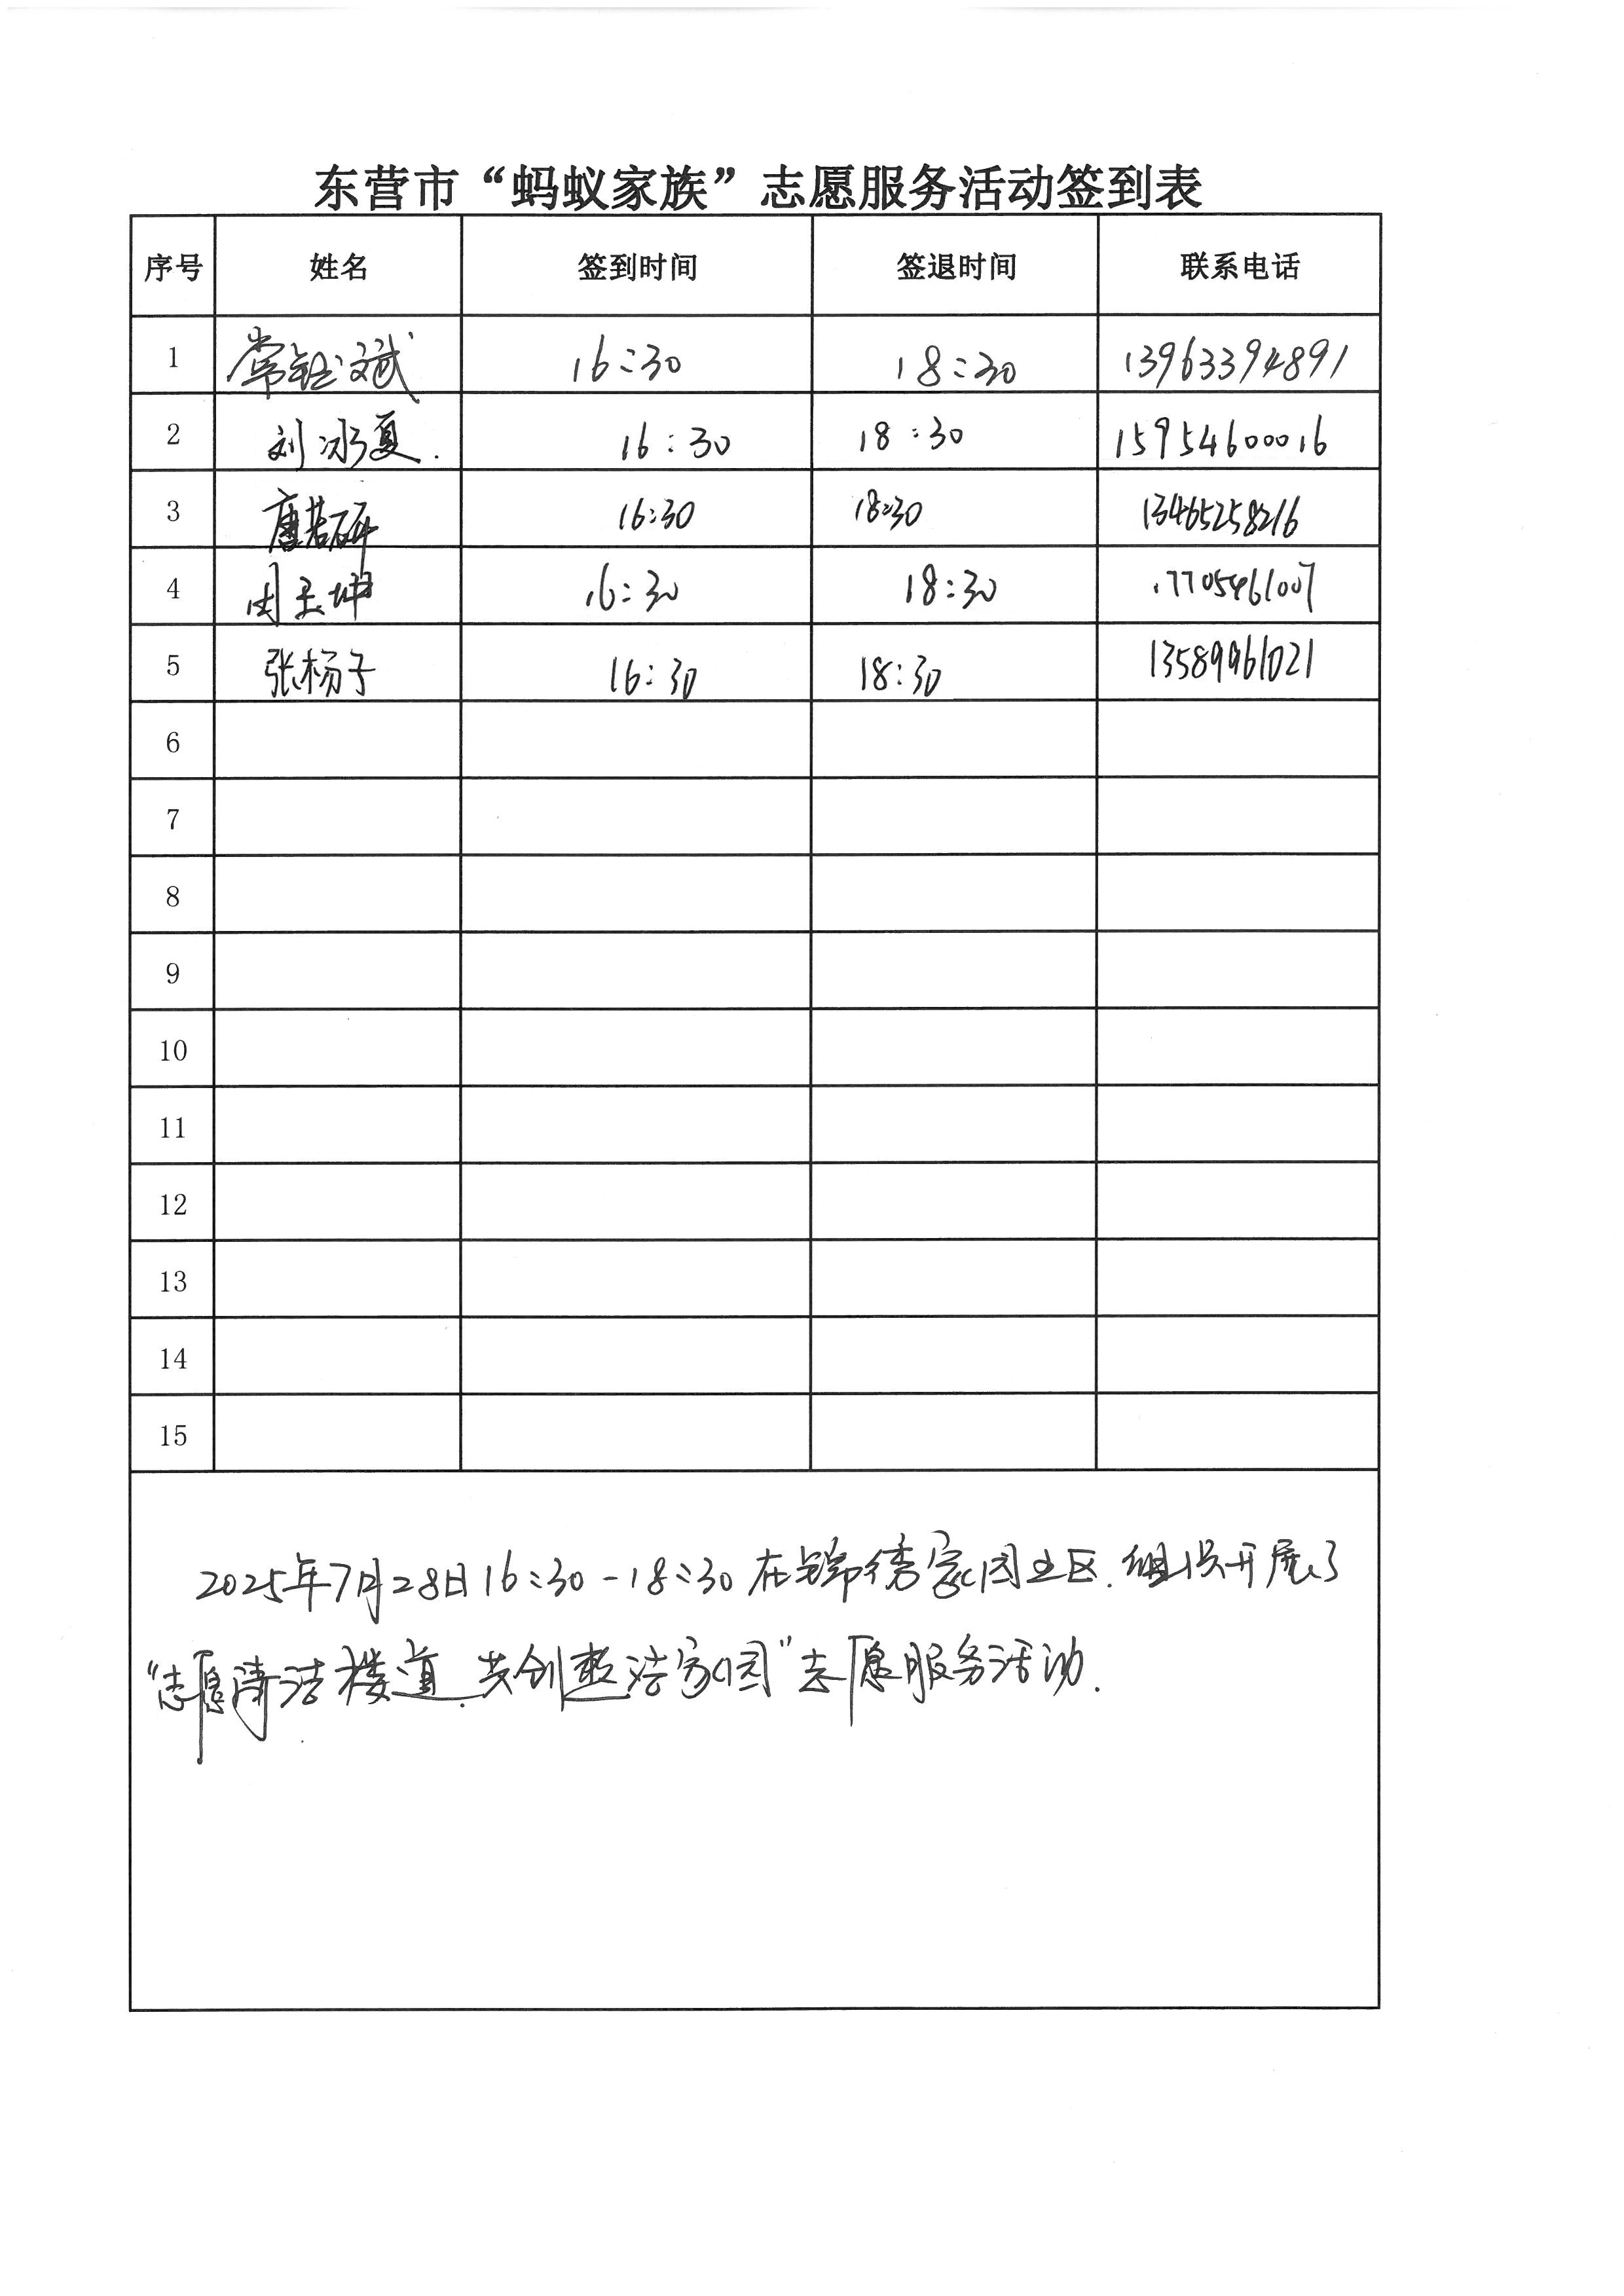 东营市“蚂蚁家族”志愿服务活动签到表
序号 姓名 签到时间 签退时间 联系电话
1 常钰斌 16:30 18:30 13963394891
2 刘冰夏. 16:30 18:30 15954600016
3 唐若研 16:30 18:30 13465258216
4 周玉坤 16:30 18:30 17705461007
5 张杨子 16:30 18:30 13589961021
6
7
8
9
10
11
12
13
14
15
2025年7月28日16:30-18:30在锦绣家园社区.组织开展了
“志愿清洁楼道.共创整洁家园”志愿服务活动.